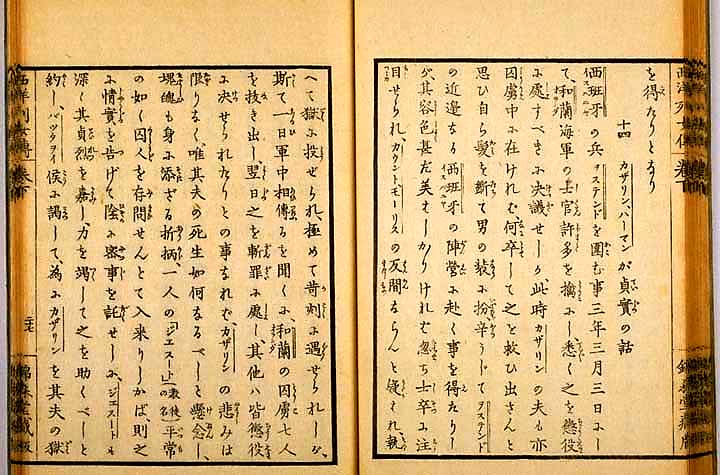 を得たりとなり
十四 カザリン、ハーマンが貞實の話
西班牙の兵ヲステンドを圍む事三年三月三日にし
て、和蘭海軍の士官許多を擒にし悉く之を懲役
に處すべきに决議せしが此時カザリンの夫も亦
囚虜中に在けれバ何卒して之を救ひ出さんと
思ひ自ら髮を斷て男の裝に扮辛うじてヲステンド
の近邊なる西班牙の陣營に赴く事を得たりし
が、其容色甚だ美はしかりけれバ忽ち士卒に注
目せられ、カウントモーリスの反間ならんと疑はれ執
へて獄に投せられ、極めて苛刻に遇せられしが、
斯て一日軍中相傳るを聞くに和蘭の囚虜七人
を抜き出し、翌日之を斬罪に處し、其他ハ皆懲役
に决せられたりとの事なれバ、カザリンの悲みは
限りなく、唯其夫の死生如何なるべしと懸念し、
魂魄も身に添ざる折柄、一人の「ジエスート」教徒の名平常
の如く囚人を存問せんとて入来りしかば則之
に情實を告げて陰に密事を託せしに、ジエスートも
深く其貞烈を嘉し力を竭して之を助くべしと
約し、バックヲイ侯に謁して、為にカザリンを其夫の獄
西洋列女傳 卷下
二十七
錦森堂藏版